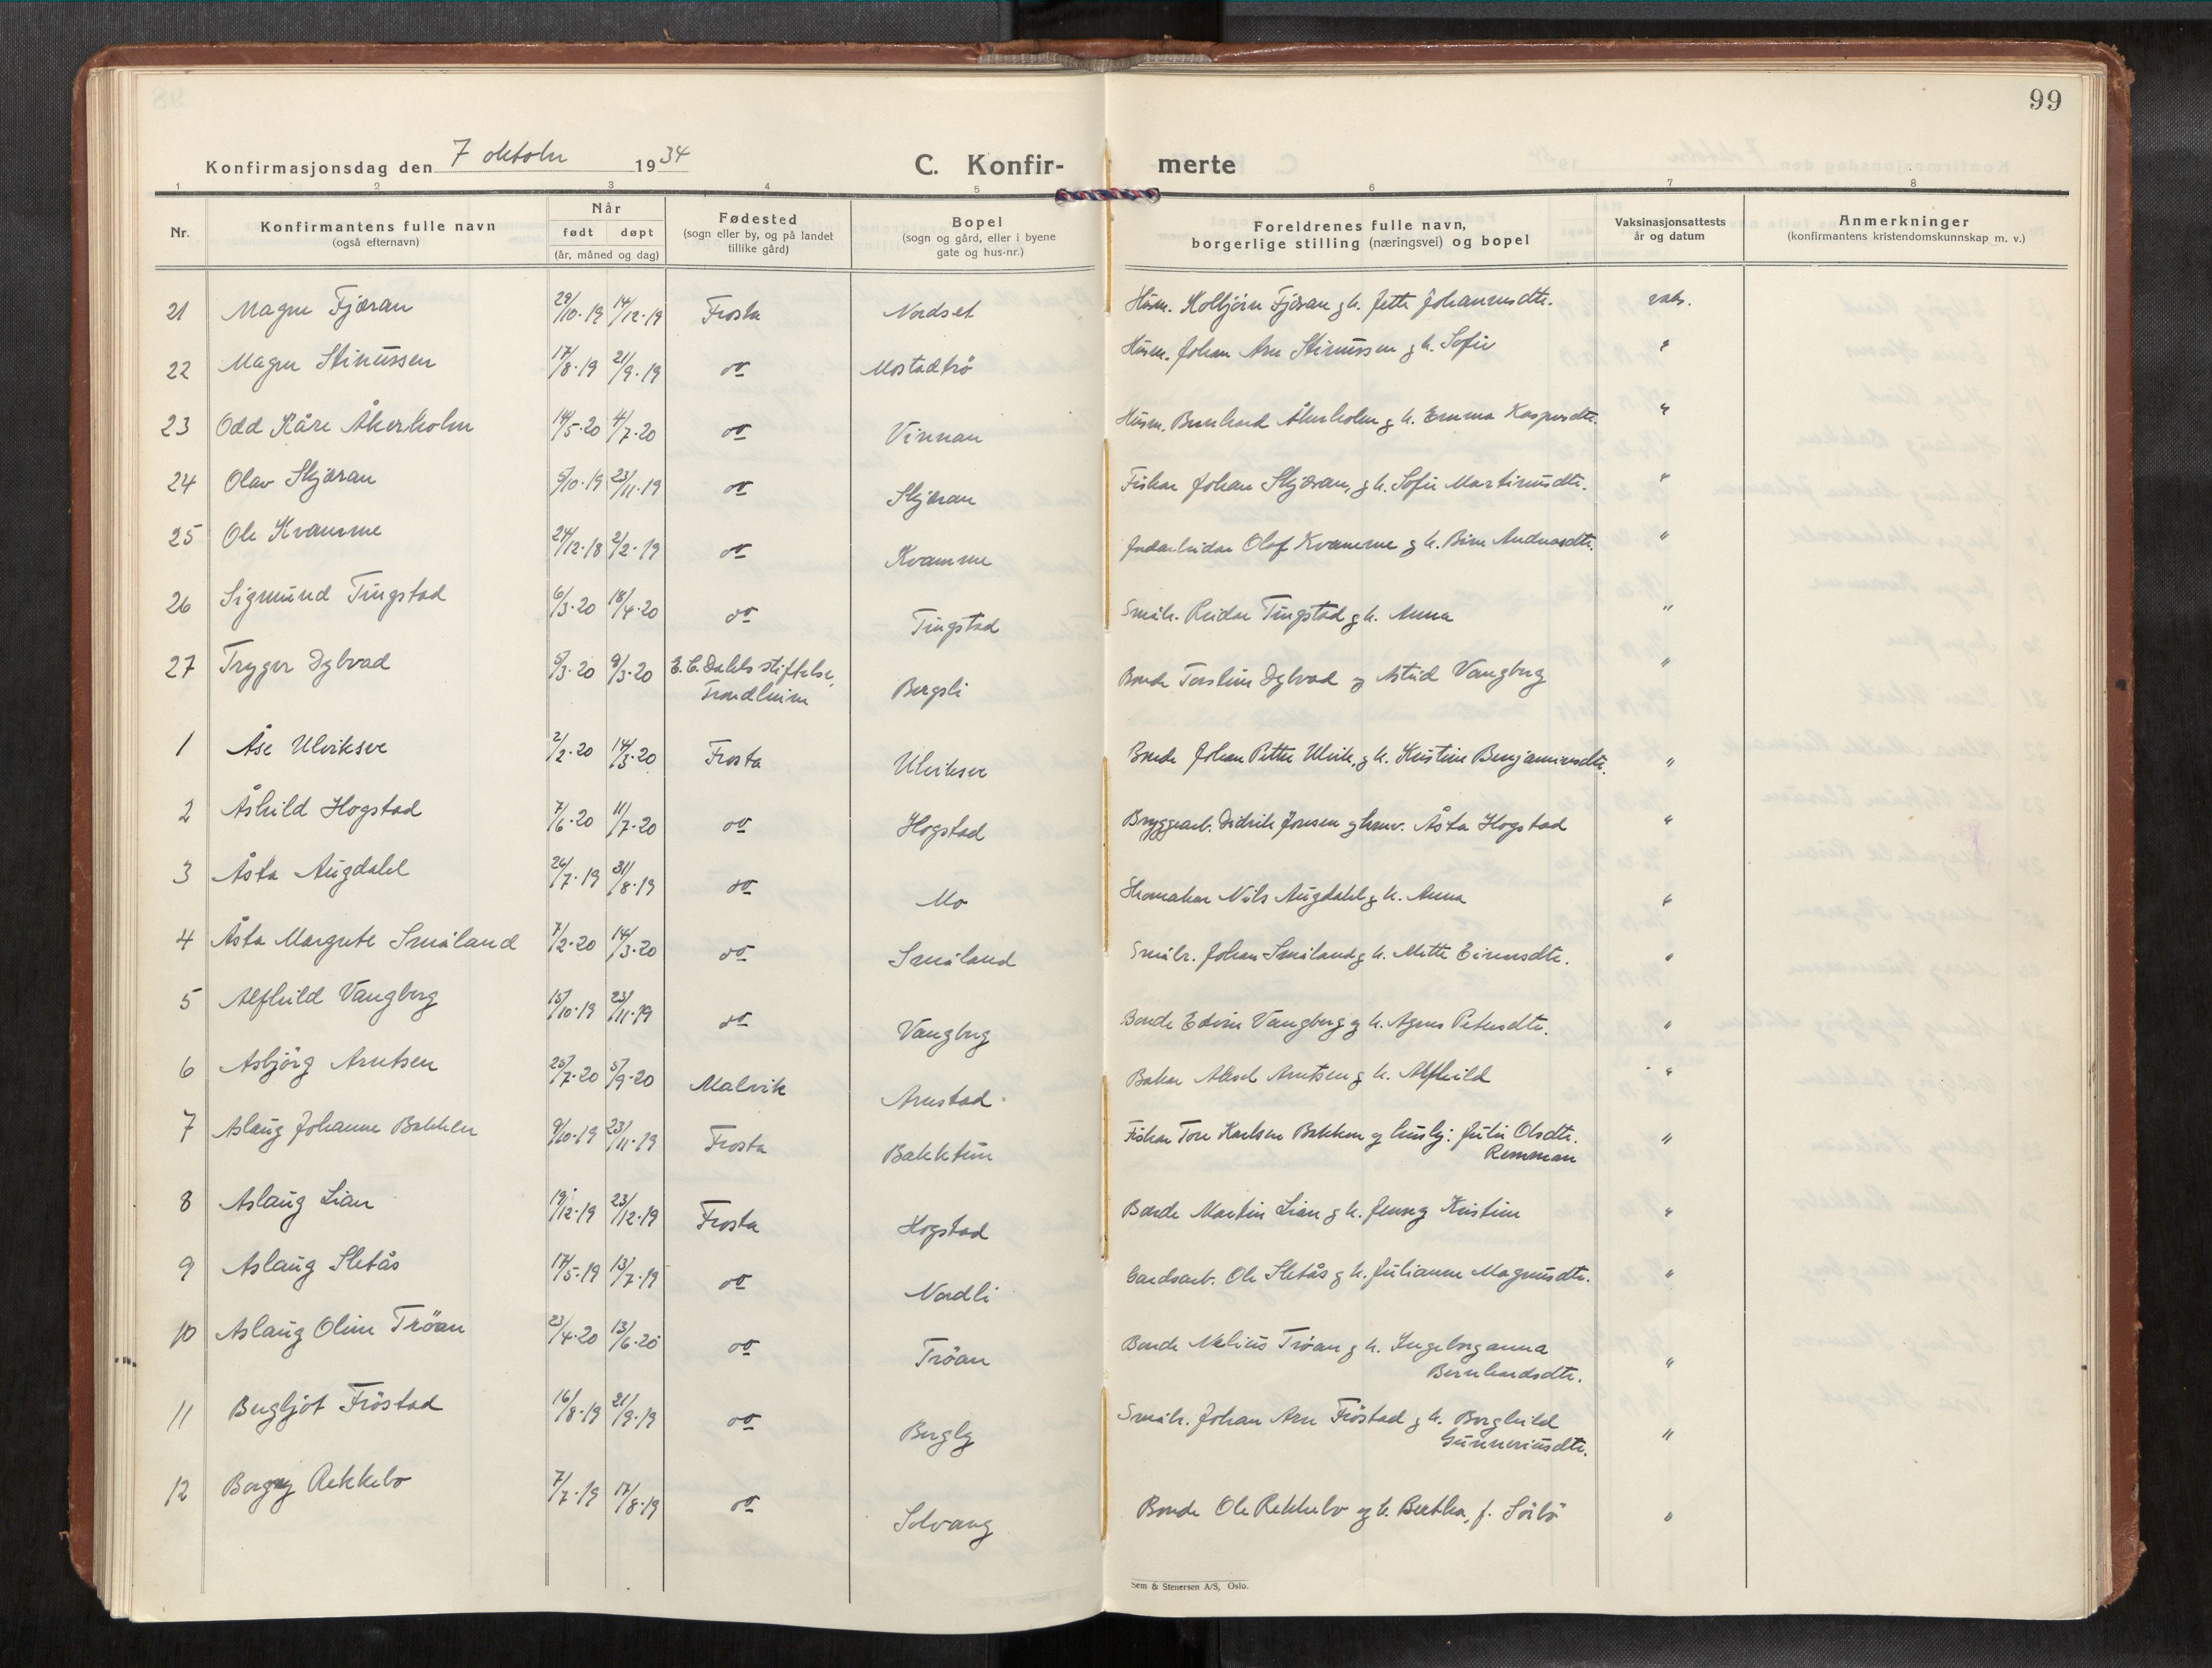 99
Konfirmasjonsdag den 7 oktobr 1934
C. Konfir- merte
1 2 3 4 5 6 7 8
Nr. Konfirmantens fulle navn (også efternavn) Når født døpt (år, måned og dag) Fødested (sogn eller by, og på landet tillike gård) Bopel (sogn og gård, eller i byene gate og hus-nr.) Foreldrenes fulle navn, borgerlige stilling (næringsvei) og bopel Vaksinasjonsattests år og datum Anmerkninger (konfirmantens kristendomskunnskap m. v.)
21 Magne Fjæran 29/10·19 14/12·19 Frosta Nordset Husm. Kolbjörn Fjæran g h. Jette Johannesdtr. vaks.
22 Magne Stinussen 17/8·19 21/9·19 do Mostadtrö Husm. Johan Arn Stinussen g h. Sofie "
23 Odd Kåre Åkerholm 14/5·20 4/7·20 do Vinnan Husm. Bernhard Åkerholm g h. Emma Kaspersdtr. "
24 Olav Skjæran 5/10·19 23/11·19 do Skjæran Fisker Johan Skjæran, g h. Sofie Martinusdtr. "
25 Ole Kvamme 24/12·18 2/2·19 do Kvamme Olaf Kvamme g h. Andreasdtr. "
26 Sigmund Tingstad 6/3·20 18/4·20 do Tingstad Småbr. Reidar Tingstad g h. Anna "
27 Trygve Dybvad 5/3·20 9/3·20 E. C. Dahls stiftelse, Bergsli Bonde Torstein Dybvad og Astrid Vangberg "
Trondheim
1 Åse Ulvikser 2/2·20 14/3·20 Frosta Ulvikser Bonde Johan Petter Ulvik, g h. Kristine Benjaminsdtr. "
2 Åshild Hogstad 7/6·20 11/7·20 do Hogstad Bryggearb. Didrik Jonsen g hmv. Åsta Hogstad "
3 Åsta Augdahl 26/7·19 31/8·19 do Mo Skomaker Nils Augdahl g h. Anna "
4 Åsta Margrete Småland 7/2·20 14/3·20 do Småland Småbr. Johan Småland g h. Mette Einersdtr. "
5 Alfhild Vangberg 15/10·19 23/11·19 do Vangberg Bonde Edvin Vangberg g h. Agnes Petersdtr. "
6 Asbjörg Arntsen 25/7·20 5/9·20 Malvik Arnstad Baker Aksel Arntsen g h. Alfhild "
7 Aslaug Johanne Bakken 9/10·19 23/11·19 Frosta Bakktun Fisker Tore Karlsen Bakken g Julie Olsdtr. "
Remman
8 Aslaug Lian 19/12·19 23/12·19 Frosta Hogstad Bonde Martin Lian g h. Jenny Kristine "
9 Aslaug Sletås 17/5·19 13/7·19 do Nordli Gardsarb. Ole Sletås g h. Julianne Magnusdtr. "
10 Aslaug Oline Tröan 23/4·20 13/6·20 do Tröan Bonde Nelius Tröan g h. Ingeborganna "
Bernhardsdtr.
11 Bergljot Fröstad 16/8·19 21/9·19 do Bergly Småbr. Johan Arn Fröstad g h. Borghild "
Gunneriusdtr.
12 Borgny Rekkebo 7/7·19 17/8·19 do Solvang Bonde Ole Rekkebo og h. Bertha, f. "
Sem & Stenersen A/S, Oslo.